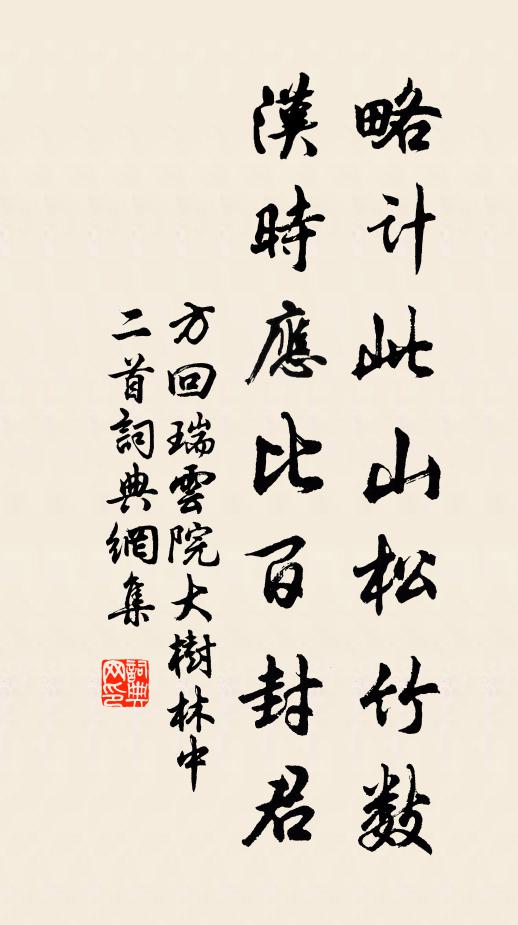 略計此山松竹數
漢時應比百封君
方回瑞雲院大樹林中
二首詞典網集
詞典网印